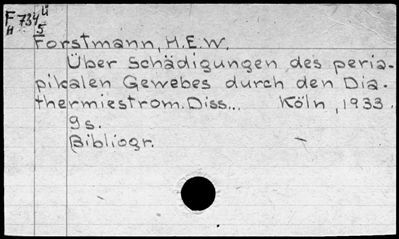 F 734
5
Forstmann, H.E.W.
Über Schädigungen des peria-
pikalen Gewebes durch den Dia-
thermiestrom. Diss... Köln, 1933.
9s.
Bibliogr.